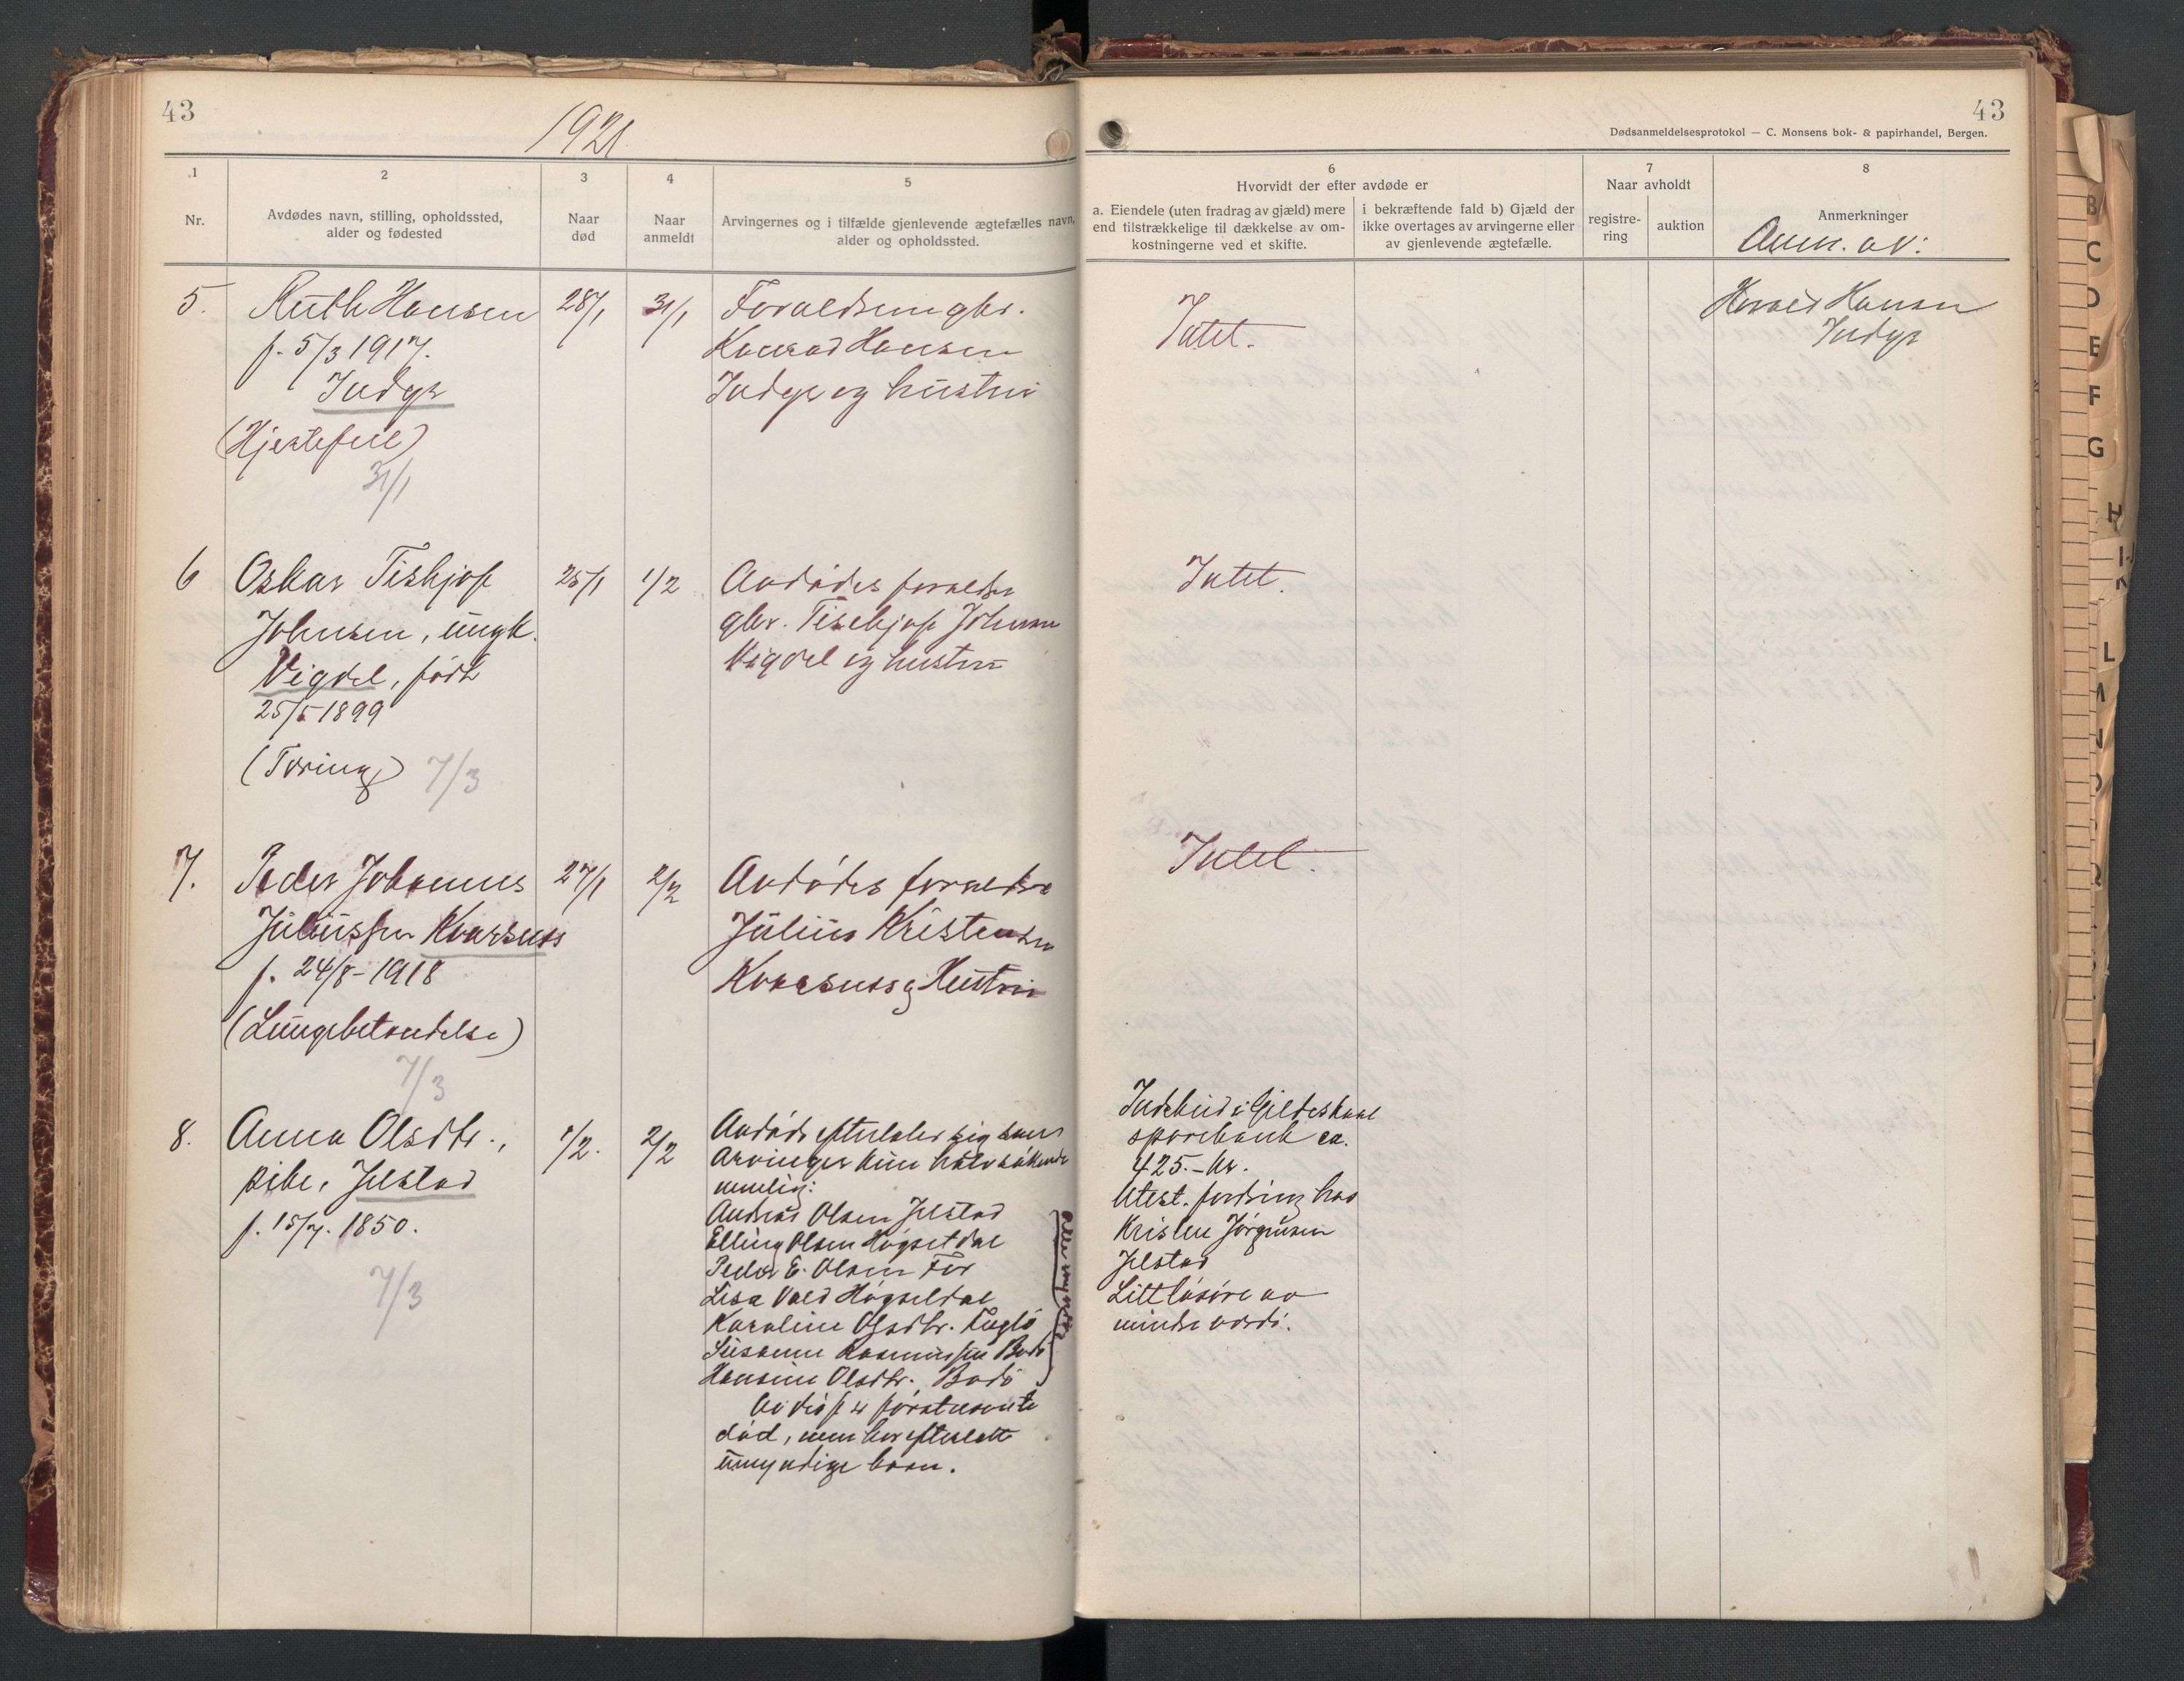 43
1921.
1
2
3
4
5
Nr.
Avdødes navn, stilling, opholdssted,
alder og fødested
Naar
død
Naar
anmeldt
Arvingernes og i tilfælde gjenlevende ægtefælles navn,
alder og opholdssted.
5. Ruth Hansen 28/1 31/1 Forældrene gbr.
f. 5/3 1917. Konrad Hansen
Indyr Indyr og hustru
(Hjertefeil)
31/1
6 Oskar Tiskjøf 25/1 1/2 Avdødes forældre
Johnsen, ungk. gbr. Johnsen
Vigdel, født Vigdel og hustru
25/5 1899
(Tæring) 7/3
7. Peder Johannes 27/1 2/2 Avdødes forældre
Juliussen Kvarsnes Julius Kristensen
f. 24/8-1918 Kvarsnes og Hustru
(Lungebetændelse)
7/3
8. Anna Olsdtr., 1/2. 2/2 Avdøde efterlater sig som
pike, Jelstad arvinger kun halvsøskende
f. 15/7. 1850. nemlig:
7/3
Andreas Olsen Jelstad
Elling Olsen Høgsetdal
Peder E. Olsen For
Lisa Vold Høgsetdal
Karoline Olsdtr. Fuglø
Susanne Rasmussen Bodø
Hansine Olsdtr. Bodø
alle myndige
Av disse er førstnevnte
død, men har efterlatt
umyndige barn.
43
Dødsanmeldelsesprotokol — C. Monsens bok- & papirhandel, Bergen.
6
Hvorvidt der efter avdøde er
7
Naar avholdt
8
a. Eiendele (uten fradrag av gjæld) mere
end tilstrækkelige til dækkelse av om-
kostningerne ved et skifte.
i bekræftende fald b) Gjæld der
ikke overtages av arvingerne eller
av gjenlevende ægtefælle.
registre-
ring
auktion
Anmerkninger
Anm. av:
Intet. Hansen
Indyr
Intet.
Intet.
Indskud i Gildeskaal
sparebank ca.
425.- kr.
Utest. fordring hos
Kristen Jørgensen
Jelstad
Litt løsøre av
mindre værdi.
B
C
D
E
F
G
H
I
L